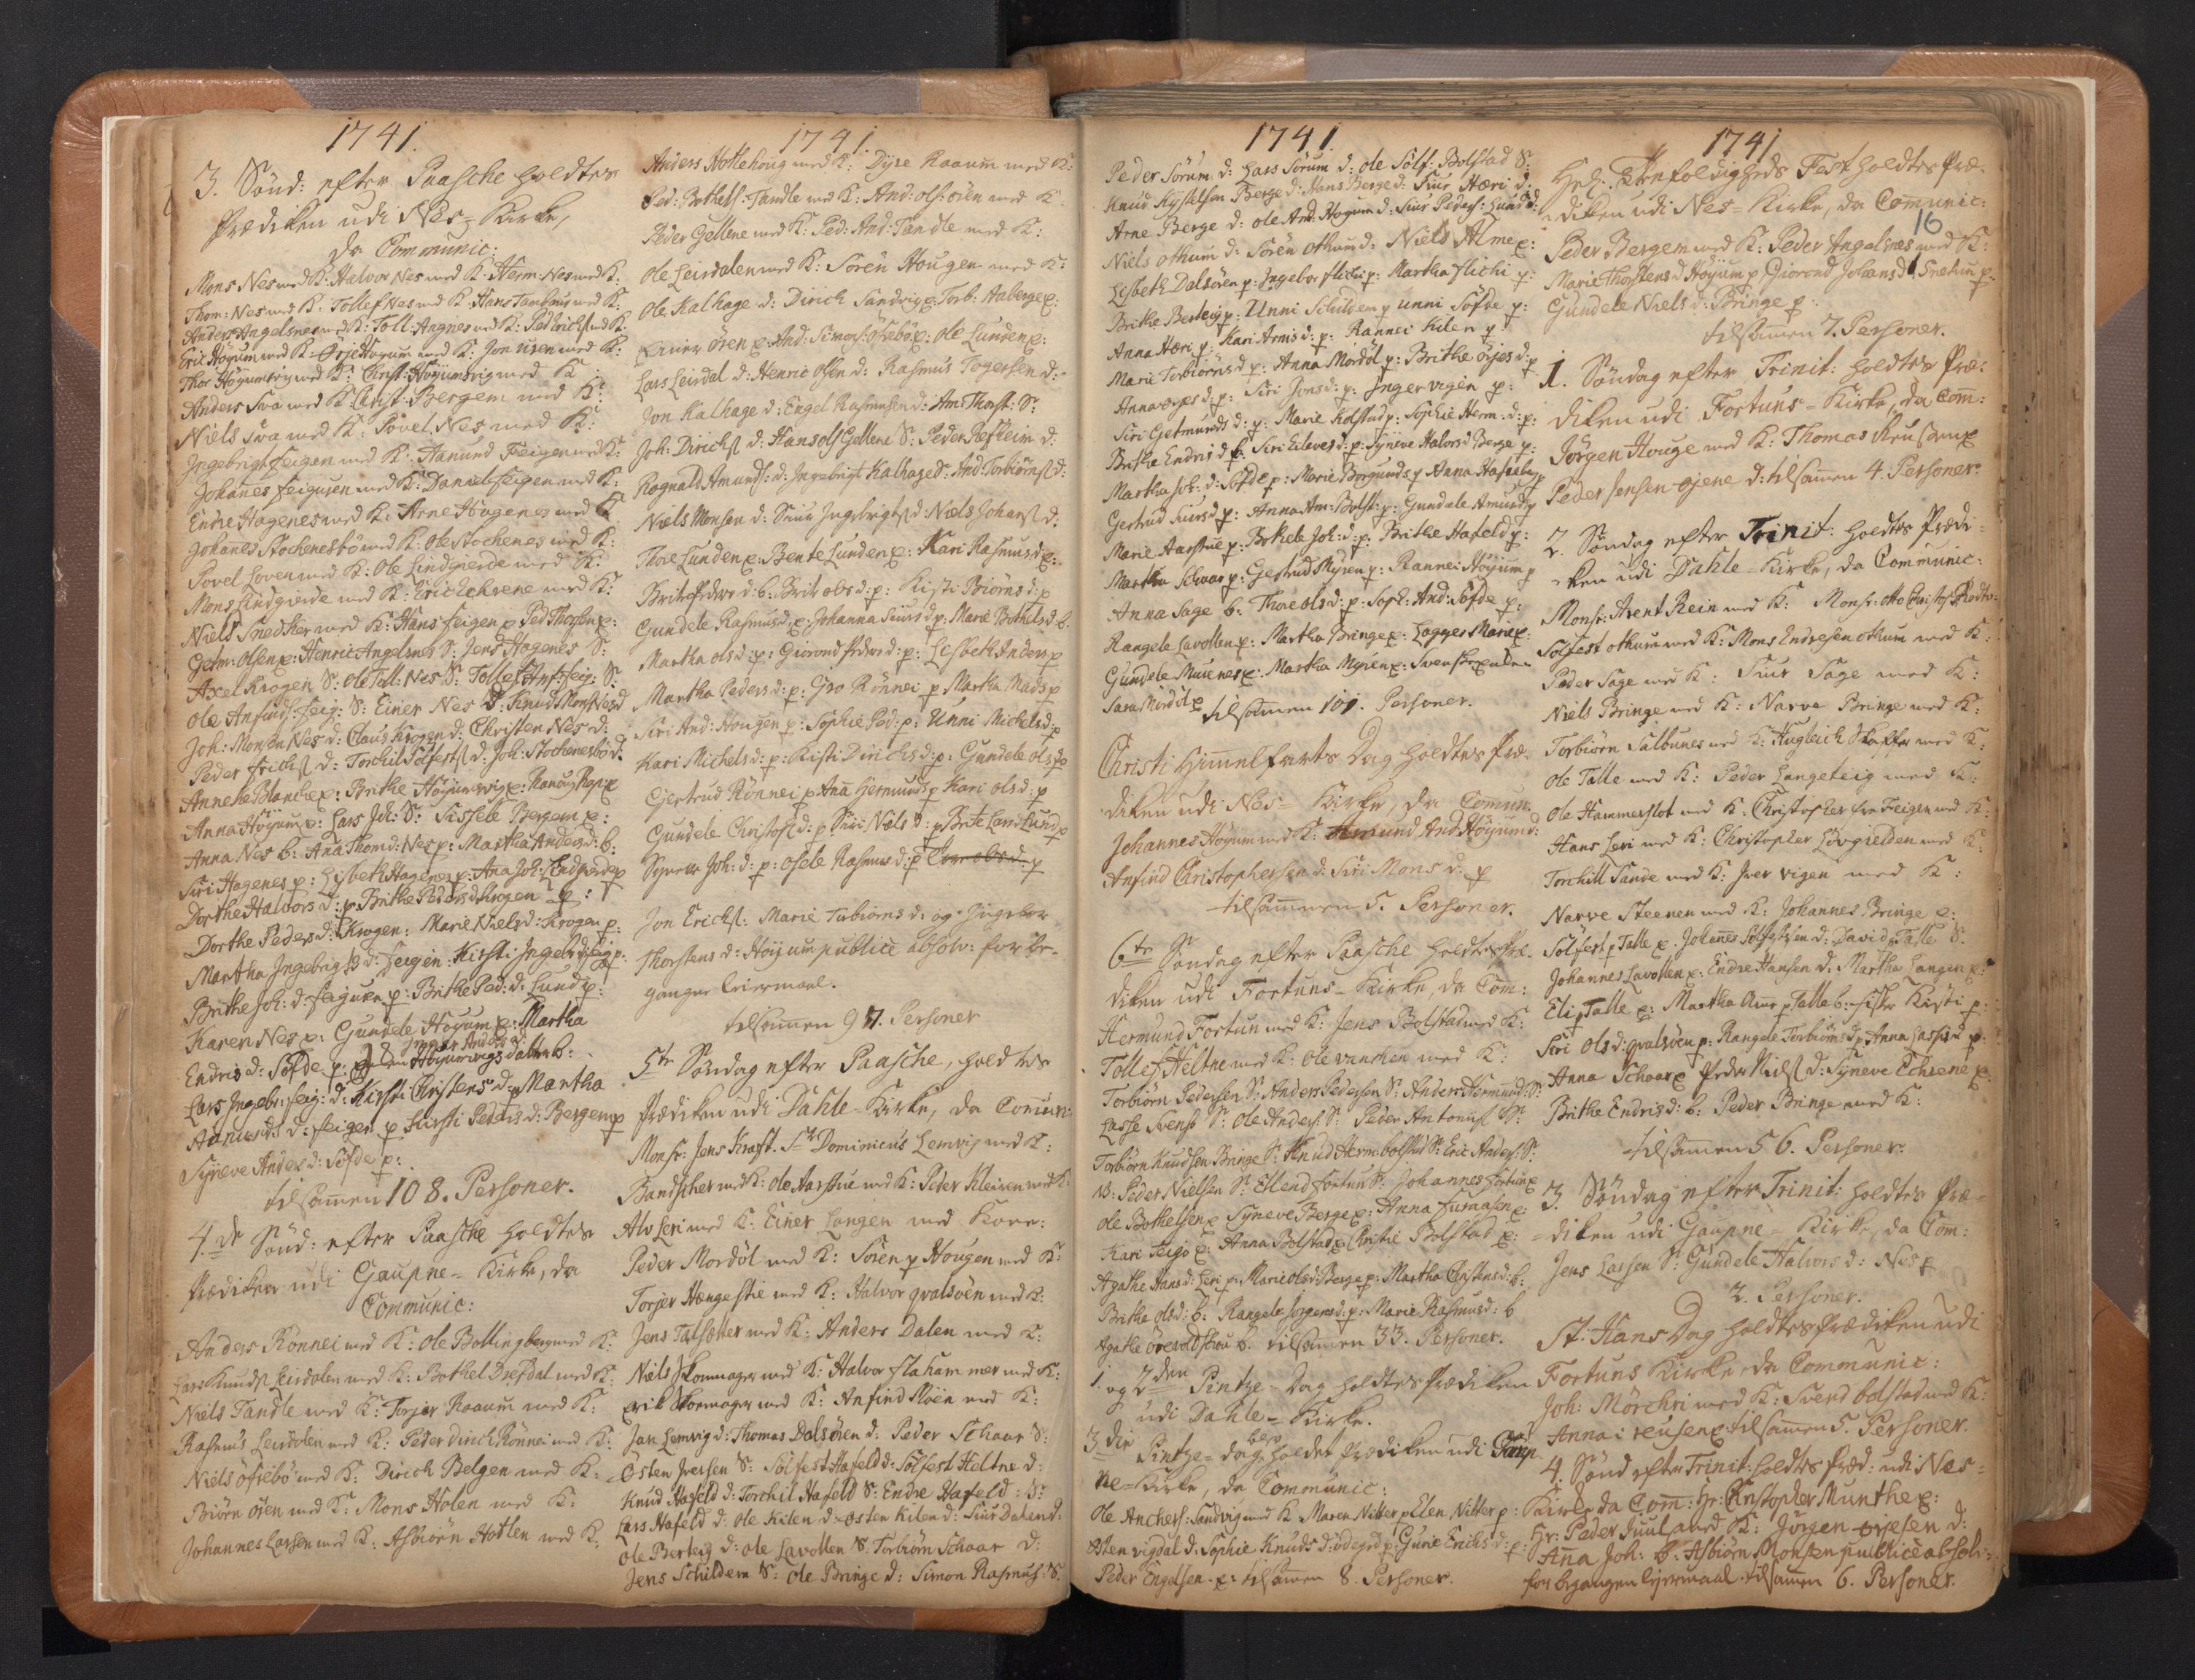 1741.
3. Sönd: efter Paasche holdtes
Prædiken udi Nes-Kirke,
da Communic:
Mons Nes med K: Halvor Nes med K: Herm: Nes med K.
Thom: Nes med K. Tollef Nes med K. Hans med K:
Anders Angelsnes med K: Toll: med K: med K.
Eric Höyum med K. Höyum med K: Jon med K:
Thor Höyumsvig med K: Christ: Höyumsvig med K:
Anders Sva med K: Christ: Bergem med K:
Niels Sva med K: Povel Nes med K:
Ingebrigt Feigen med K: Aamund Feigen med K:
Johanes Feigusen med K: Daniel Feigen med K:
Endre Hagenes med K: Arne Hagenes med K
Johanes Stochenesbö med K: Ole Stochenes med K:
Povel Loven med K: Ole Lindgierde med K:
Mons Lindgierde med K: Eric Echrene med K:
Niels Snedker med K: Hans Feigen p Ped Thorsen p:
Getm: Olsen p: Henric Angelsnes S: Jens Hagenes S:
Axel Krogen S: Ole Toll: Nes S: Tollef Anf: Feig: S:
Ole Anfinds: Feig: S: Einer Nes D: Knud Mons: Nes d
Joh: Monsen Nes d: Claus Krogen d: Christen Nes d:
Peder Erichs: d: Torchil Sölfests: d: Joh: Stochenesbö d:
Anneke Blanche p: Brithe Höyumsvig p:
Anna Höyum p: Lars Joh: S: Sissele Bergem p:
Anna Nes b: Ana Thom: d: Nes p: Martha Anders d: b:
Siri Hagenes p: Lisbeth Hagenes p: Ana Joh: Lindgierde p
Dorthe Halvors d: p Brithe Peders d: Krogen p:
Dorthe Peders d: Krogen: Marie Niels d: Krogen p:
Martha Ingebrigts d: Feigen: Kirsti Ingebr: d: Feig p:
Brithe Joh: d: Feigusen p: Brithe Ped: d: Lund p:
Karen Nes p: Gundele Höyum p: Martha
Endris d: Söfde p: Inger Anders d: Höyumsvigs datter b:
Lars Ingebr: Feig: d: Kirsti Christens d: p Martha
Aamunds d: Feigen p Kirsti Peders d: Bergem p
Syneve Anders d: Söfde p:
tilsamen 108. Personer.
4.de Sönd: efter Paasche holdtes
Prædiken udi Gaupne-Kirke, da
Communic:
Anders Rönnei med K: Ole Bollingberg med K:
Lars Knuds: Leirdalen med K: Bothel Drefdal med K:
Niels Tandle med K: Torjer Raaum med K:
Rasmus Leirdalen med K: Peder Dirich Rönnei med K:
Niels Öfsebö med K: Dirich Belgen med K:
Biörn Ören med K: Mons Holen med K:
Johannes Larsen med K: Asbiörn Hotlen med K:
1741.
Anders Hotlehoug med K: Dyre Raaum med K:
Ped: Bothels: Tandle med K: And: Ols: Ören med K:
Peder Gellene med K: Ped: And: Tandle med K:
Ole Leirdalen med K: Sören Hougen med K:
Ole Kalhage d: Dirich Sandvig p: Torb: Aaberge p:
Einer Ören p: And: Simons: Öfsebö p: Ole Lunden p:
Lars Leirdal d: Henric Olsen d: Rasmus Togersen d:
Jon Kalhage d: Engel Rasmusen d: Am: Thorst: S:
Joh: Dirichs: d: Hans Ols: Gellene S: Peder Refheim d:
Rognald Amunds: d: Ingebrigt Kalhage d: And: Torbiörns: d:
Niels Monsen d: Siuur Ingebrigts: d: Niels Johans: d:
Thore Lunden p: Bente Lunden p: Kari Rasmus d p:
Brite Peders d: b: Brite Ols d: p: Kisti Biörns d: p
Gundele Rasmus d p: Johanna Siurs d p: Marie Bothels d b.
Martha Ols d: p: Giörond Peders d: p: Lisbeth Anders p
Martha Peders d: p: Gro Rönnei p Martha Mads p
Siri And: Hougen p: Sophie Ped: p: Unni Michels d: p
Kari Michels d: p: Kisti Dirichs d: p: Gundele Ols p
Gjertrud Rönnei p Ana Germunds p Kari Ols d: p
Gundele Christofs: d: p Siri Niels d: p Brite Lars Lund p
Syneve Joh: d: p: Osele Rasmus d: p Tore Ols d: p
Jon Erichs: Marie Tubiörns d: og Ingebor
Thorstens d: Höyum publicè absolv: for be-
gangne leiermaal.
tilsamen 97. Personer
5te Söndag efter Paasche, holdtes
Prædiken udi Dahle-Kirke, da Comun:
Monsr: Jens Kraft. Sr Dominicus Lemvig med K:
Bandscher med K: Ole Aarstue med K: Peder Kleiven med K:
Alv Leri med K: Einer Langen med Kone:
Peder Mordöl med K: Sören p Hougen med K:
Torjer Hængestie med K: Halvor Qvalsöen med K:
Jens Talsætter med K: Anders Dalen med K:
Niels Skommager med K: Halvor Flahammer med K:
Erik Skoemager med K: Anfind Möen med K:
Jan Lemvig d: Thomas Dalsören d: Peder Schaar S:
Östen Iversen S: Solfest Hafeld d: Solfest Heltne d:
Knud Hafeld d: Torchil Hafeld S: Endre Hafeld: S:
Lars Hafeld d: Ole Kilen d: Östen Kilen d: Siur Dalen d:
Ole Berteig d: Ole Lavollen S: Torbiörn Schaar d:
Jens Schildern S: Ole Bringe d: Simon Rasmus: S:
1741.
Peder Sörum d: Lars Sörum d: Ole Sölf: Bolstad S:
Knud Kystelsen Berge d: Hans Berge d: Siur Hæri d:
Arne Berge d: Ole And: Hogum d: Siur Peders: Lund d:
Niels Othum d: Sören Othum d: Niels Alme p:
Lisbeth Dalsören p: Ingebor Flichi p: Martha Flichi p:
Brithe Berteig p: Unni Schilden p Unni Söfde p:
Anna Hæri p: Kari Arnis d: p: Rannei Kilen p
Marie Torbiörns d p: Anna Mördöl p: Brithe Örjes d: p
Anna Örjes d: p: Siri Jons d: p: Inger Vigen p:
Siri Getmunds d: p: Marie Kolstad p: Sophie Herm: d: p:
Brithe Endris d p: Siri Eileves d: p: Syneve Halvors d Berge p:
Martha Joh: d: Söfde p: Marie Borgunds p Anna
Gertrud Siurs d p: Anna Am: Bolst: p: Gundele Amunds p
Marie Aarstue p: Bothele Joh: d: p: Brithe Hafeld p:
Martha Schaar p: Gertrud Myren p: Rannei Höyum p
Anna Sage b: Thore Ols d: p: Soph: And: Söfde p:
Rangele Lavollen p: Martha Bringe p: Lagges Marie p:
Gundele p: Martha Myren p:
Sara Mördöl p tilsamen 101. Personer.
Christi Himmelfarts Dag holdtes Præ-
diken udi Nes-Kirke, da Comun.
Johannes Höyum med K: Amund And: Höyum d:
Anfind Christophersen d: Siri Mons d: p
tilsammen 5. Personer.
6te Söndag efter Paasche holdtes Præ-
diken udi Fortuns-Kirke, da Com:
Hermund Fortun med K: Jens Bolstad med K:
Tollef Heltne med K: Ole med K:
Torbiörn Pedersen S: Anders Pedersen S: Anders Hermund: S:
Lasse Svens: S: Ole Anders: S: Peder Antonius: S:
Torbiörn Knudsen Bringe S: Knud Herm: Bolstad S: Eric Anders: S:
Peder Nielsen S: Ellend Fortun S: Johannes Fortun p
Ole Bothelsen p Syneve Berge p: Anna Furaasen p:
Kari Feigo p: Anna Bolstad p Christi Bolstad p:
Agathe Hans d: Leri p: Marie Ols d: Berge p: Martha Christens d: b:
Brithe Ols d: b: Rangele Jörgens d: p: Marie Rasmus d: b
Agathe b. tilsamen 33. Personer.
1. og 2den Pintze-Dag holdtes Prædiken
udi Dahle-Kirke.
3die Pintze-dag blev holdet Prædiken udi Gaup-
ne-Kirke, da Communic:
Ole Anchers: Sandvig med K Maren Nitter p Elen Nitter p:
Östen Vigdal d: Sophie Knuds d: Ödegrd p: Gurie Erichs d: p:
Peder Engelsen p: tilsamen 8. Personer.
1741
16
Hell: Trefoldigheds Fest holdtes Præ-
diken udi Nes-Kirke, da Comunic:
Peder Bergem med K: Peder Angelsnes med K:
Marie Thorstens d Höyum p Giörond Johans d: Snetun p
Gundele Niels d: Bringe p:
tilsamen 7. Personer.
1. Söndag efter Trinit: holdtes Præ-
diken udi Fortuns-Kirke, da Com:
Jörgen Houge med K: Thomas p
Peder Jensen Öjene d: tilsamen 4. Personer.
2. Söndag efter Trinit: holdtes Prædi-
ken udi Dahle-Kirke, da Communic:
Monsr: Arent Rein med K: Monsr: Otto Christof:
Solfest Othum med K: Mons Endresen Othum med K:
Peder Sage med K: Siur Sage med K:
Niels Bringe med K: Narve Bringe med K:
Torbiörn Salbunes med K: Hugleich Skaffer med K:
Ole Talle med K: Peder Langeteig med K:
Ole Hammerslot med K: Christopher fra Feigen med K:
Hans Leri med K: Christopher Lövgielden med K:
Torchill Sande med K: Iver Vigen med K:
Narve Steenen med K: Johannes Bringe p:
Solfest Talle p. Johanes Solfestsen d: David Talle S.
Johannes Lavollen p: Endre Hansen d: Martha Langen p:
Eli Talle p: Martha Talle b: Kisti p:
Siri Ols d: Qvalsöen p: Rangele Torbiörns d p Anna Larses d p:
Anna Schaar p Peder Niels: d: Syneve Echrene p
Brithe Endris d: b: Peder Bringe med K:
tilsamen 56. Personer.
3. Söndag efter Trinit: holdtes Præ-
diken udi Gaupne-Kirke, da Com:
Jens Larsen S: Gundele Halvors d: Nes p
2. Personer.
St. Hans Dag holdtes Prædiken udi
Fortuns Kirke, da Communic:
Joh: Mörchri med K: Svend Bolstad med K:
Anna p: tilsamen 5. Personer.
4. Sönd efter Trinit: holdtes Præd: udi Nes-
Kirke da Com: Hr: Christopher Munthe p:
Hr: Peder Juul med K: Jörgen Örjesen d:
Anna Joh: b: Asbiörn Monsen publicè absolv:
for begangen lejermaal. tilsamen 6. Personer.